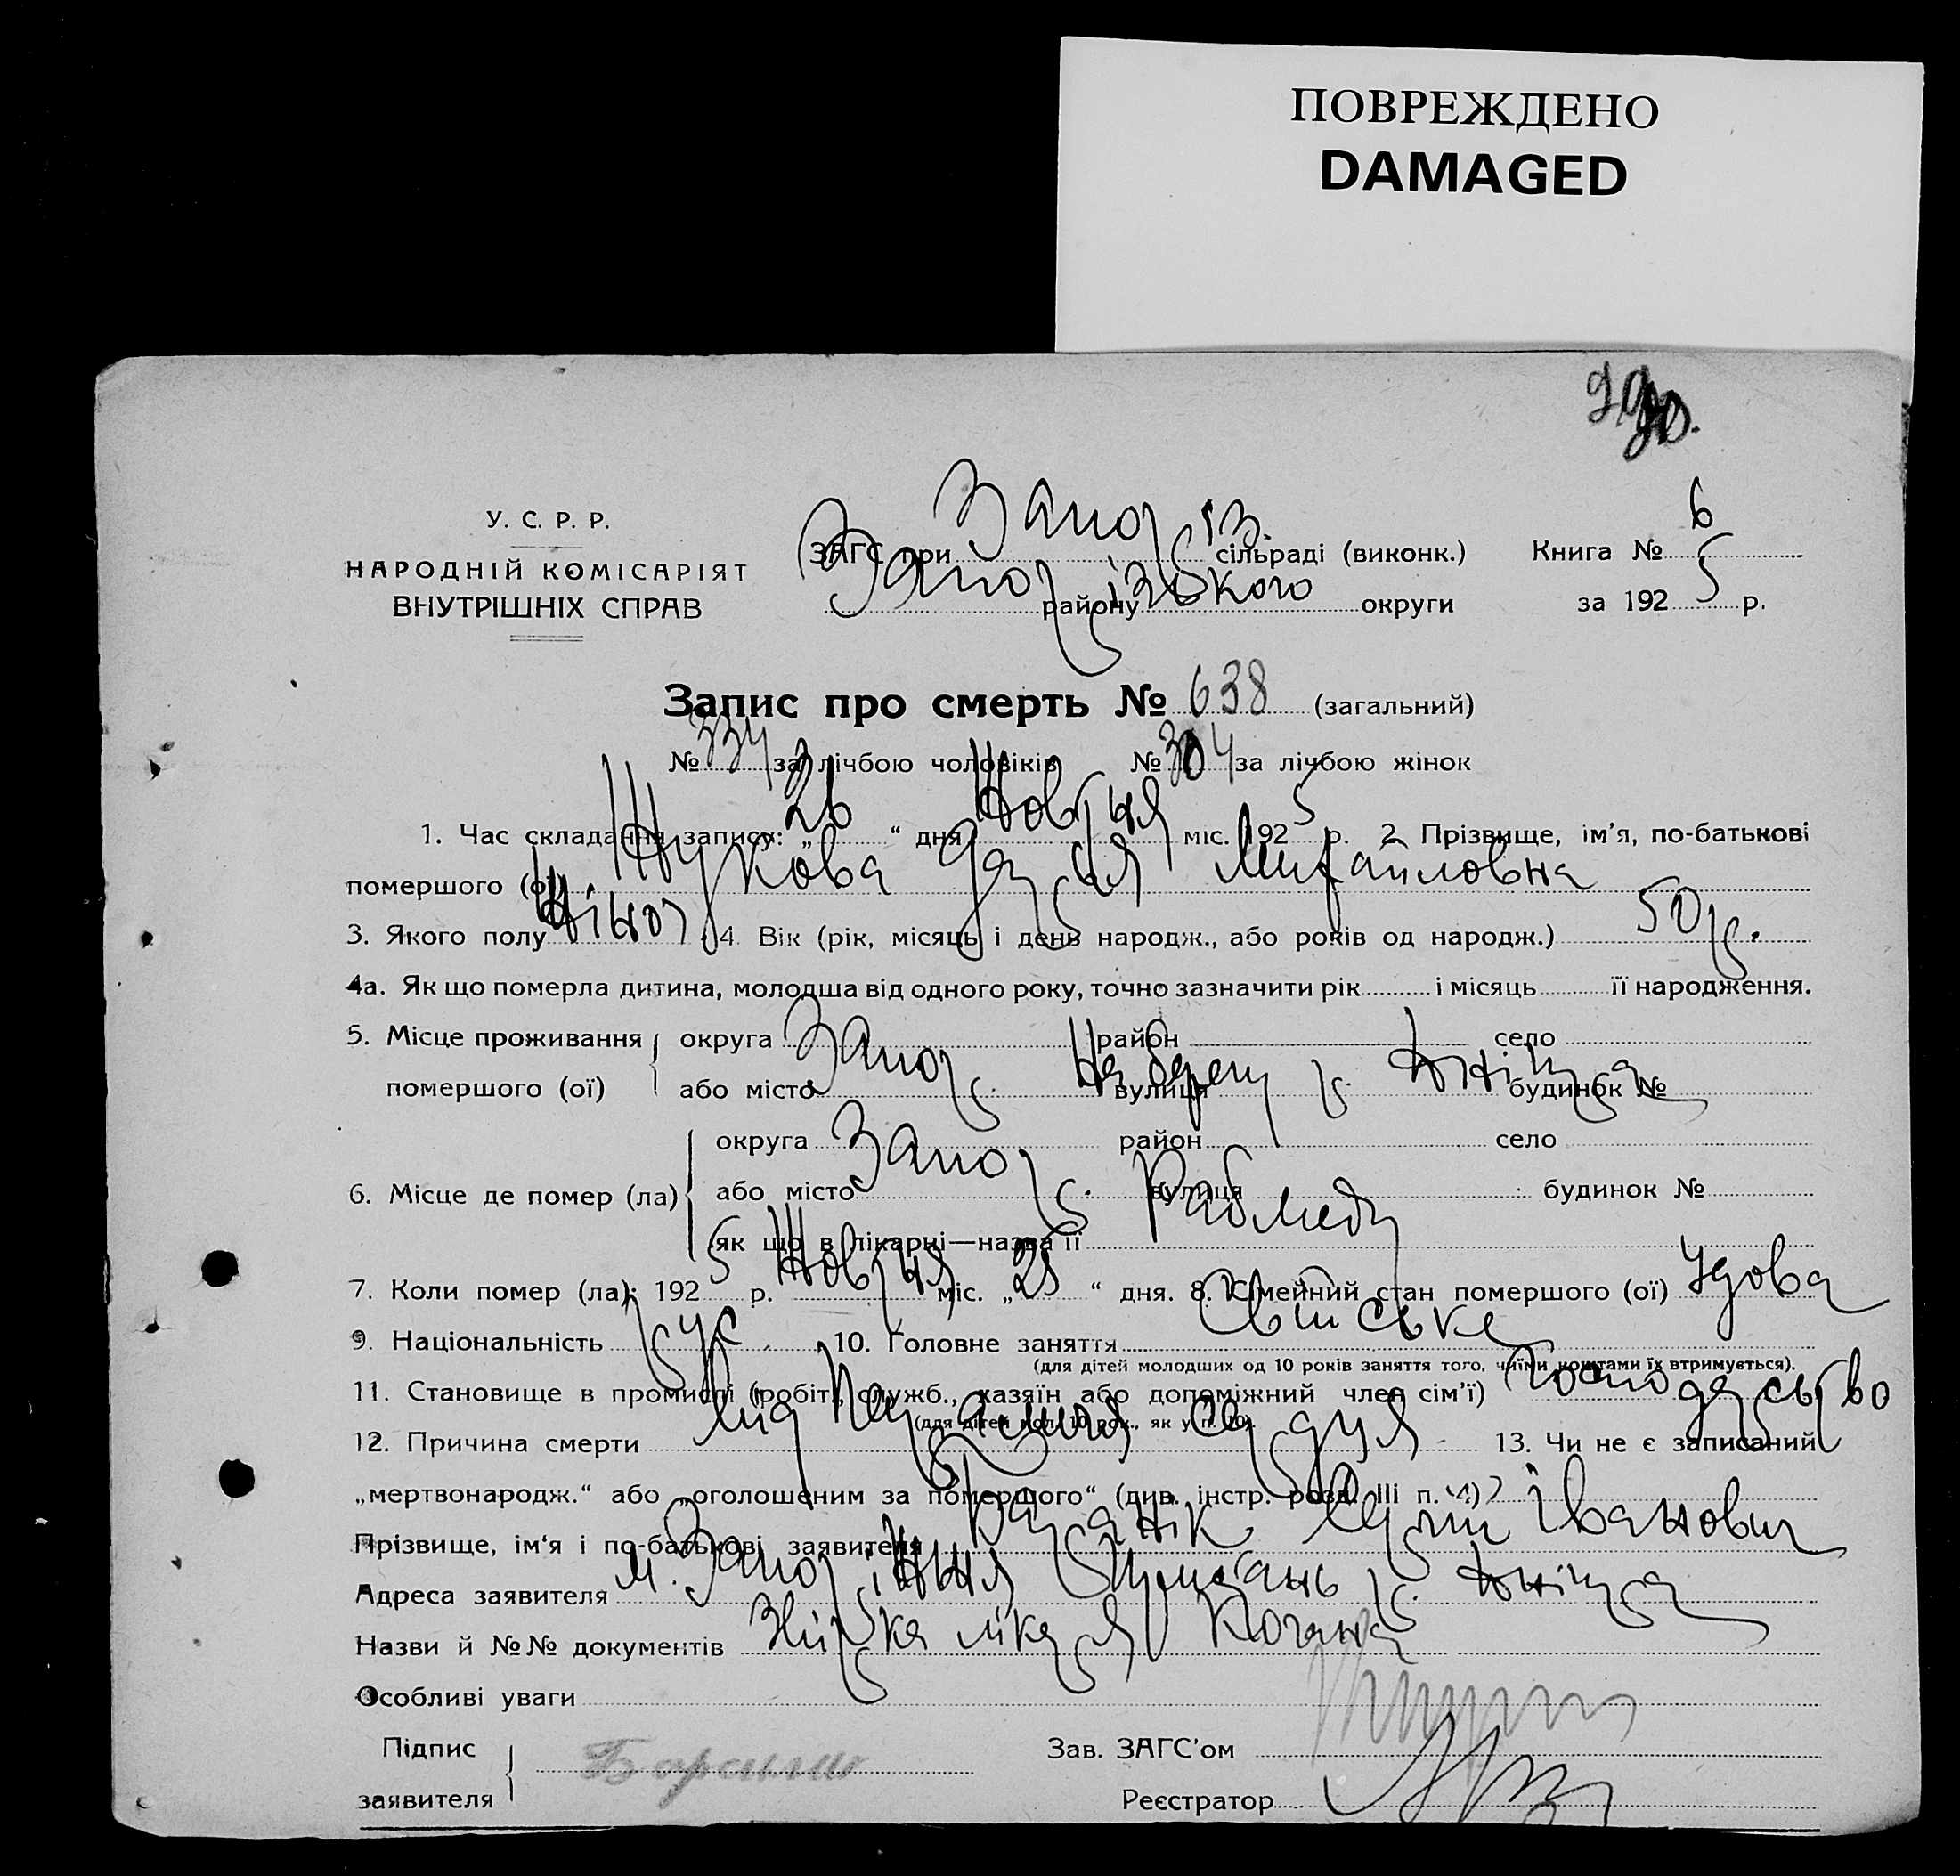 ПОВРЕЖДЕНО
DAMAGED
У. С. Р. Р.
НАРОДНІЙ КОМІСАРІЯТ
ВНУТРІШНІХ СПРАВ
ЗАГС при Запоріз. сільраді (виконк.)
Запорізького району округи
Книга № 6
за 1925 р.
Запис про смерть № 638 (загальний)
№ 334 за лічбою чоловіків № 304 за лічбою жінок
1. Час складання запису: „26“ дня Жовтня міс. 1925 р. 2. Прізвище, ім’я, по-батькові
помершого (ої) Жукова Дар'я Михайловна
3. Якого полу Жіноч 4. Вік (рік, місяць і день народж., або років од народж.) 50 р.
4а. Як що померла дитина, молодша від одного року, точно зазначити рік і місяць її народження.
5. Місце проживання помершого (ої) округа район село
або місто Запор. вулиця На берегу р. Дніпра будинок №
6. Місце де помер (ла) округа район село
або місто Запор. вулиця будинок №
як що в лікарні—назва її Рабмед
7. Коли помер (ла): 1925 р. Жовтня міс. „25“ дня. 8. Сімейний стан помершого (ої) Удова
9. Національність рус 10. Головне заняття Свійське
(для дітей молодших од 10 років заняття того, чиїми коштами їх втримується).
11. Становище в промислі (робітн., служб., хазяїн або допоміжний член сім’ї) Господарство
(для дітей мол. 10 рок., як у п. 10).
12. Причина смерти сердця 13. Чи не є записаний
„мертвонародж.“ або „оголошеним за помершого“ (див. інстр. розд. III п. 4)?
Прізвище, ім‘я і по-батькові заявителя Іванович
Адреса заявителя м. Запоріжжя р. Дніпра
Назви й №№ документів лікаря Когана
Особливі уваги
Підпис
заявителя
Зав. ЗАГС’ом
Реєстратор